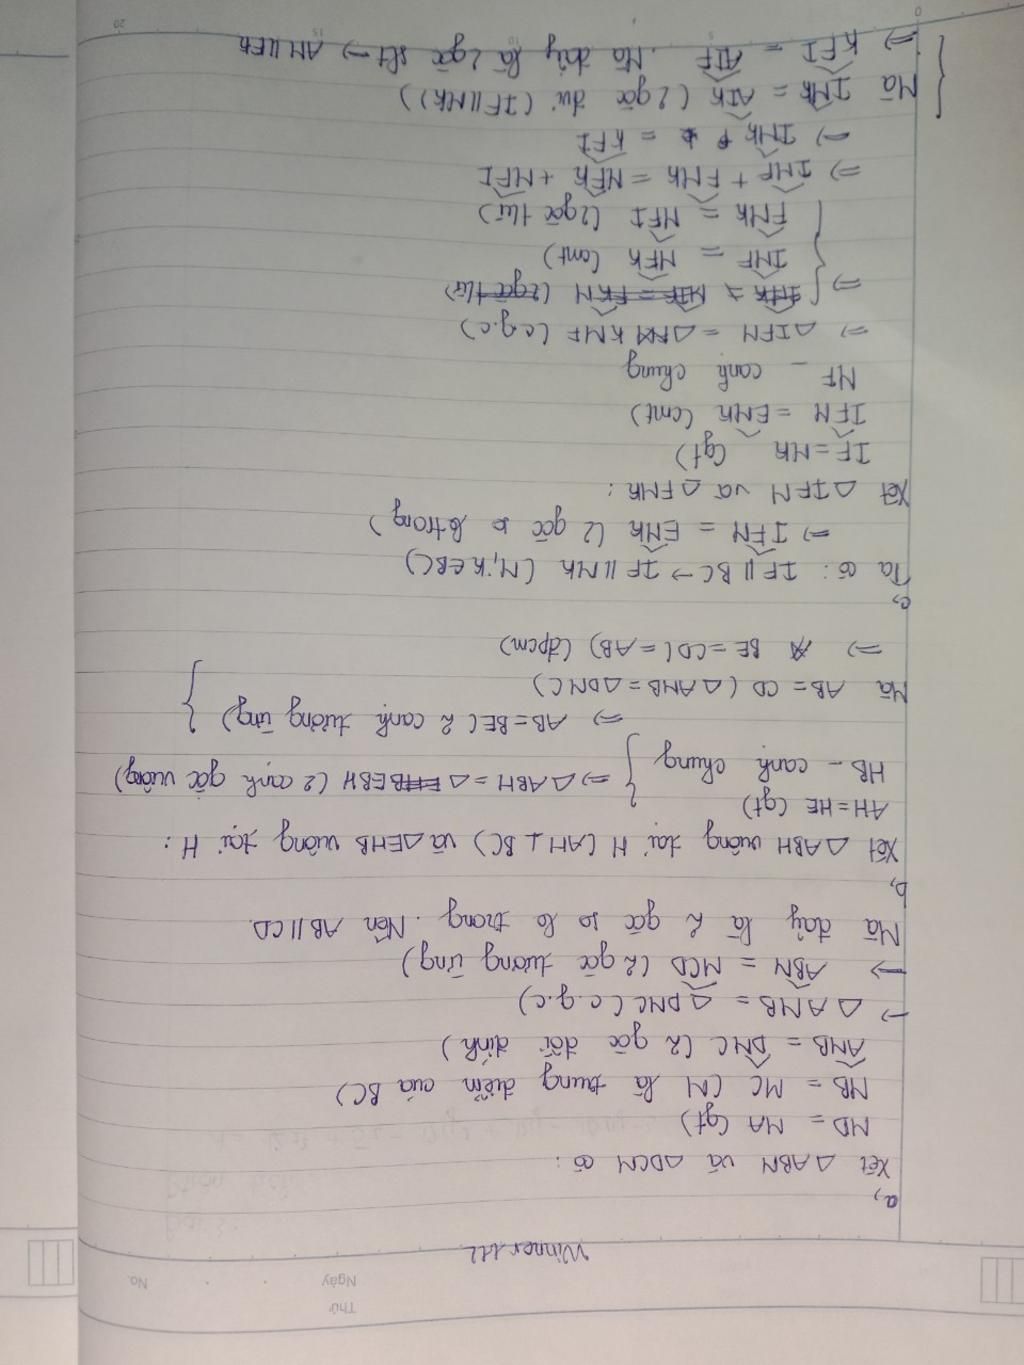 Thứ
Ngày
No.
Winner112
a,
Xét △ABM và △DCM có:
MD = MA (gt)
MB = MC (M là trung điểm của BC)
AMB = DMC (2 góc đối đỉnh)
→ △AMB = △DMC (c.g.c)
→ ABM = MCD (2 góc tương ứng)
Mà đây là 2 góc so le trong. Nên AB//CD.
b,
Xét △ABH vuông tại H (AH ⊥ BC) và △EHB vuông tại H:
AH=HE (gt)
HB - cạnh chung } ⇒ △ABH = △EBH (2 cạnh góc vuông)
⇒ AB=BE (2 cạnh tương ứng)
Mà AB = CD (△AMB=△DMC)
⇒ BE=CD(=AB) (đpcm)
c,
Ta có: IF//BC → IF//MK (M;K∈BC)
⇒ IFM = EMK (2 góc so le trong)
Xét △IFM và △FMK:
IF=MK (gt)
IFM = EMK (cmt)
MF - cạnh chung
⇒ △IFM = △KMF (c.g.c)
⇒ { (2 góc t/ư)
IMF = MFK (cmt)
FMK = MFI (2 góc t/ư)
⇒ IMF + FMK = MFK + MFI
⇒ IMK = KFI
Mà IMK = AIF (2 góc đv (IF//MK))
⇒ KFI = AIF. Mà đây là 2 góc slt ⇒ AM//FK
0
5
10
15
20